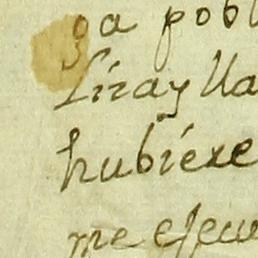 ga pobl
Liray Ua
hubiexe
me ejecu